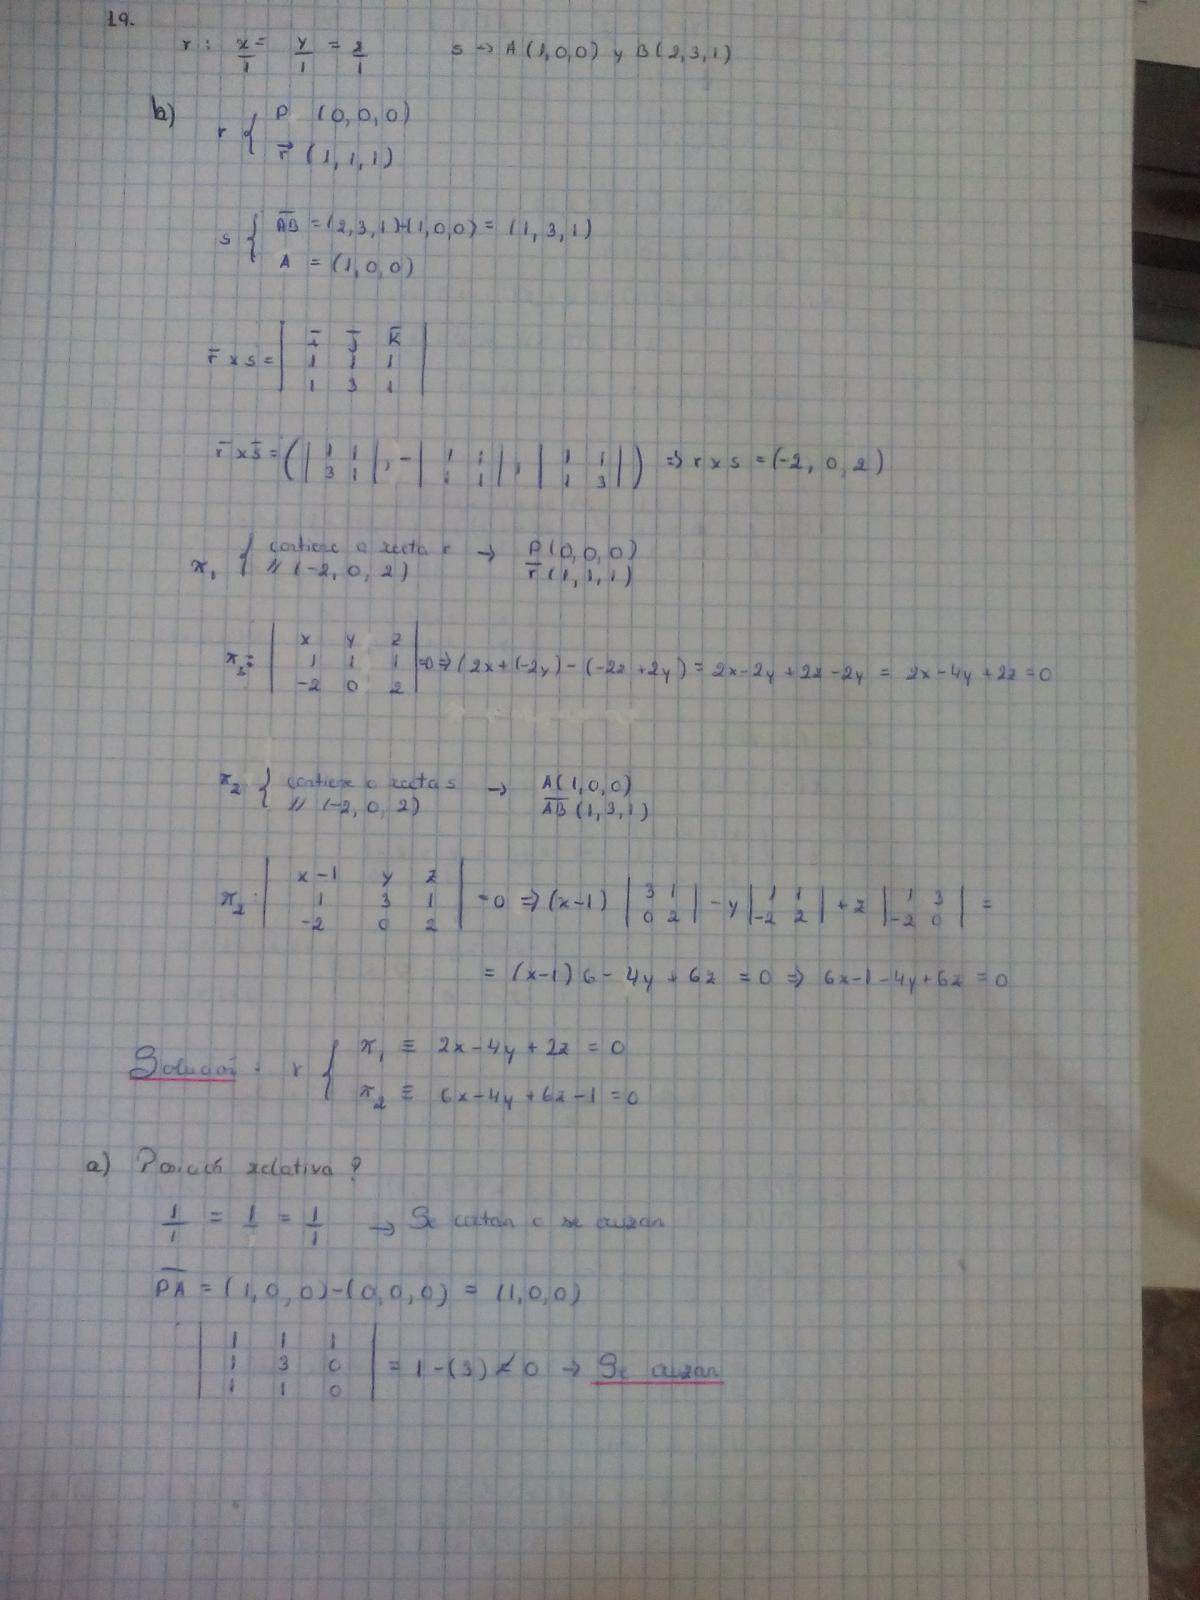 19.
r : x/1 = y/1 = z/1 s → A (1,0,0) y B (2,3,1)
b) r { P (0,0,0)
r⃗ (1,1,1)
s { AB = (2,3,1)-(1,0,0) = (1,3,1)
A = (1,0,0)
r̄ x s = | ī j̄ k̄ |
| 1 1 1 |
| 1 3 1 |
r̄ x s̄ = ( | 1 1 | , - | 1 1 | , | 1 1 | ) ⇒ r x s = (-2, 0, 2)
| 3 1 | | 1 1 | | 1 3 |
π₁ { contiene a recta r → P(0,0,0)
// (-2, 0, 2) r̄ (1,1,1)
π₁ = | x y z |
| 1 1 1 | =0 ⇒ (2x+(-2y)-(-2z+2y) = 2x-2y+2z-2y = 2x-4y+2z=0
| -2 0 2 |
π₂ { contiene a recta s → A(1,0,0)
// (-2, 0, 2) AB (1,3,1)
π₂ : | x-1 y z |
| 1 3 1 | =0 ⇒ (x-1) | 3 1 | - y | 1 1 | + z | 1 3 | =
| -2 0 2 | | 0 2 | | -2 2 | | -2 0 |
= (x-1) 6 - 4y + 6z = 0 ⇒ 6x-1-4y+6z = 0
Solución : r { π₁ ≡ 2x-4y+2z = 0
π₂ ≡ 6x-4y+6z-1=0
a) Posición relativa ?
1/1 = 1/1 = 1/1 → Se cortan o se cruzan
PA = (1,0,0)-(0,0,0) = (1,0,0)
| 1 1 1 |
| 1 3 0 | = 1-(3) ≠ 0 → Se cruzan
| 1 1 0 |